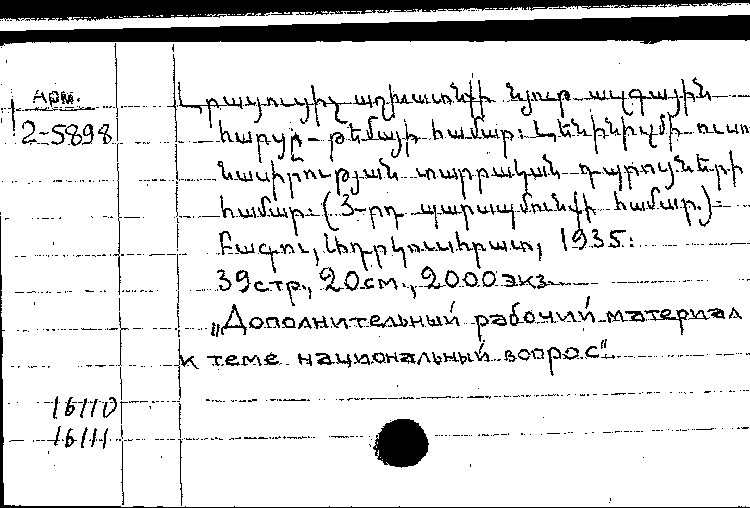 Арм.
2-5898
Լրացուցիչ աշխատանքի նյութ ազգային
հարցը - թեմայի համար: Լենինիզմի ուսում
նասիրության տարրական դպրոցների
համար: (3-րդ պարապմունքի համար):
Բագու, 1935:
39 стр., 20 см., 2000 экз.
„Дополнительный рабочий материал
к теме национальный вопрос“.
16110
16111